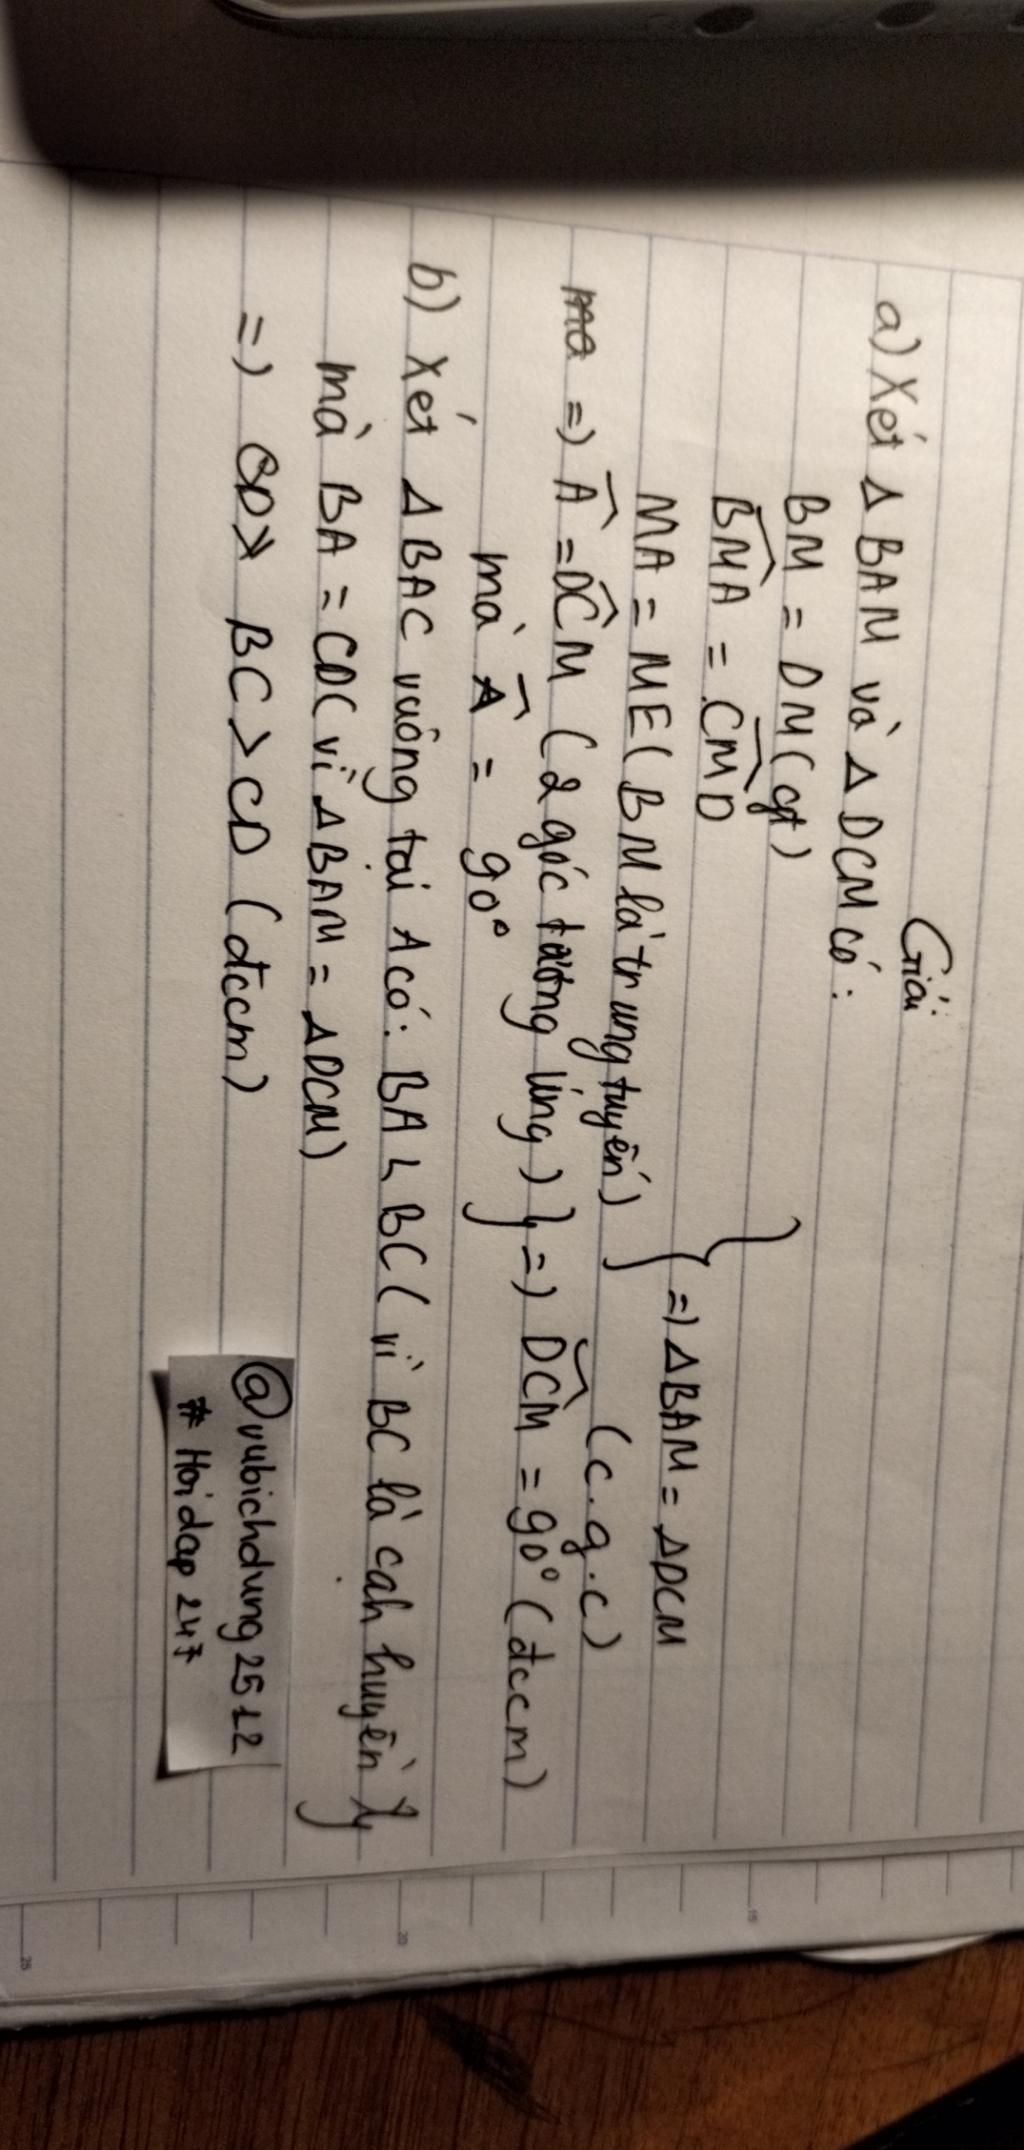 Giải
a) Xét Δ BAM và Δ DCM có:
BM = DM (gt)
BMA = CMD
MA = ME (BM là trung tuyến)
} => ΔBAM = ΔDCM
(c.g.c)
mà => A = DCM (2 góc tương ứng)
mà A = 90°
} => DCM = 90° (đccm)
b) Xét Δ BAC vuông tại A có: BA < BC (vì BC là cah huyền }
mà BA = CDC vì ΔBAM = ΔDCM)
=> CD> BC > CD (đccm)
@vubichdung2512
# Hoidap 247
15
20
25